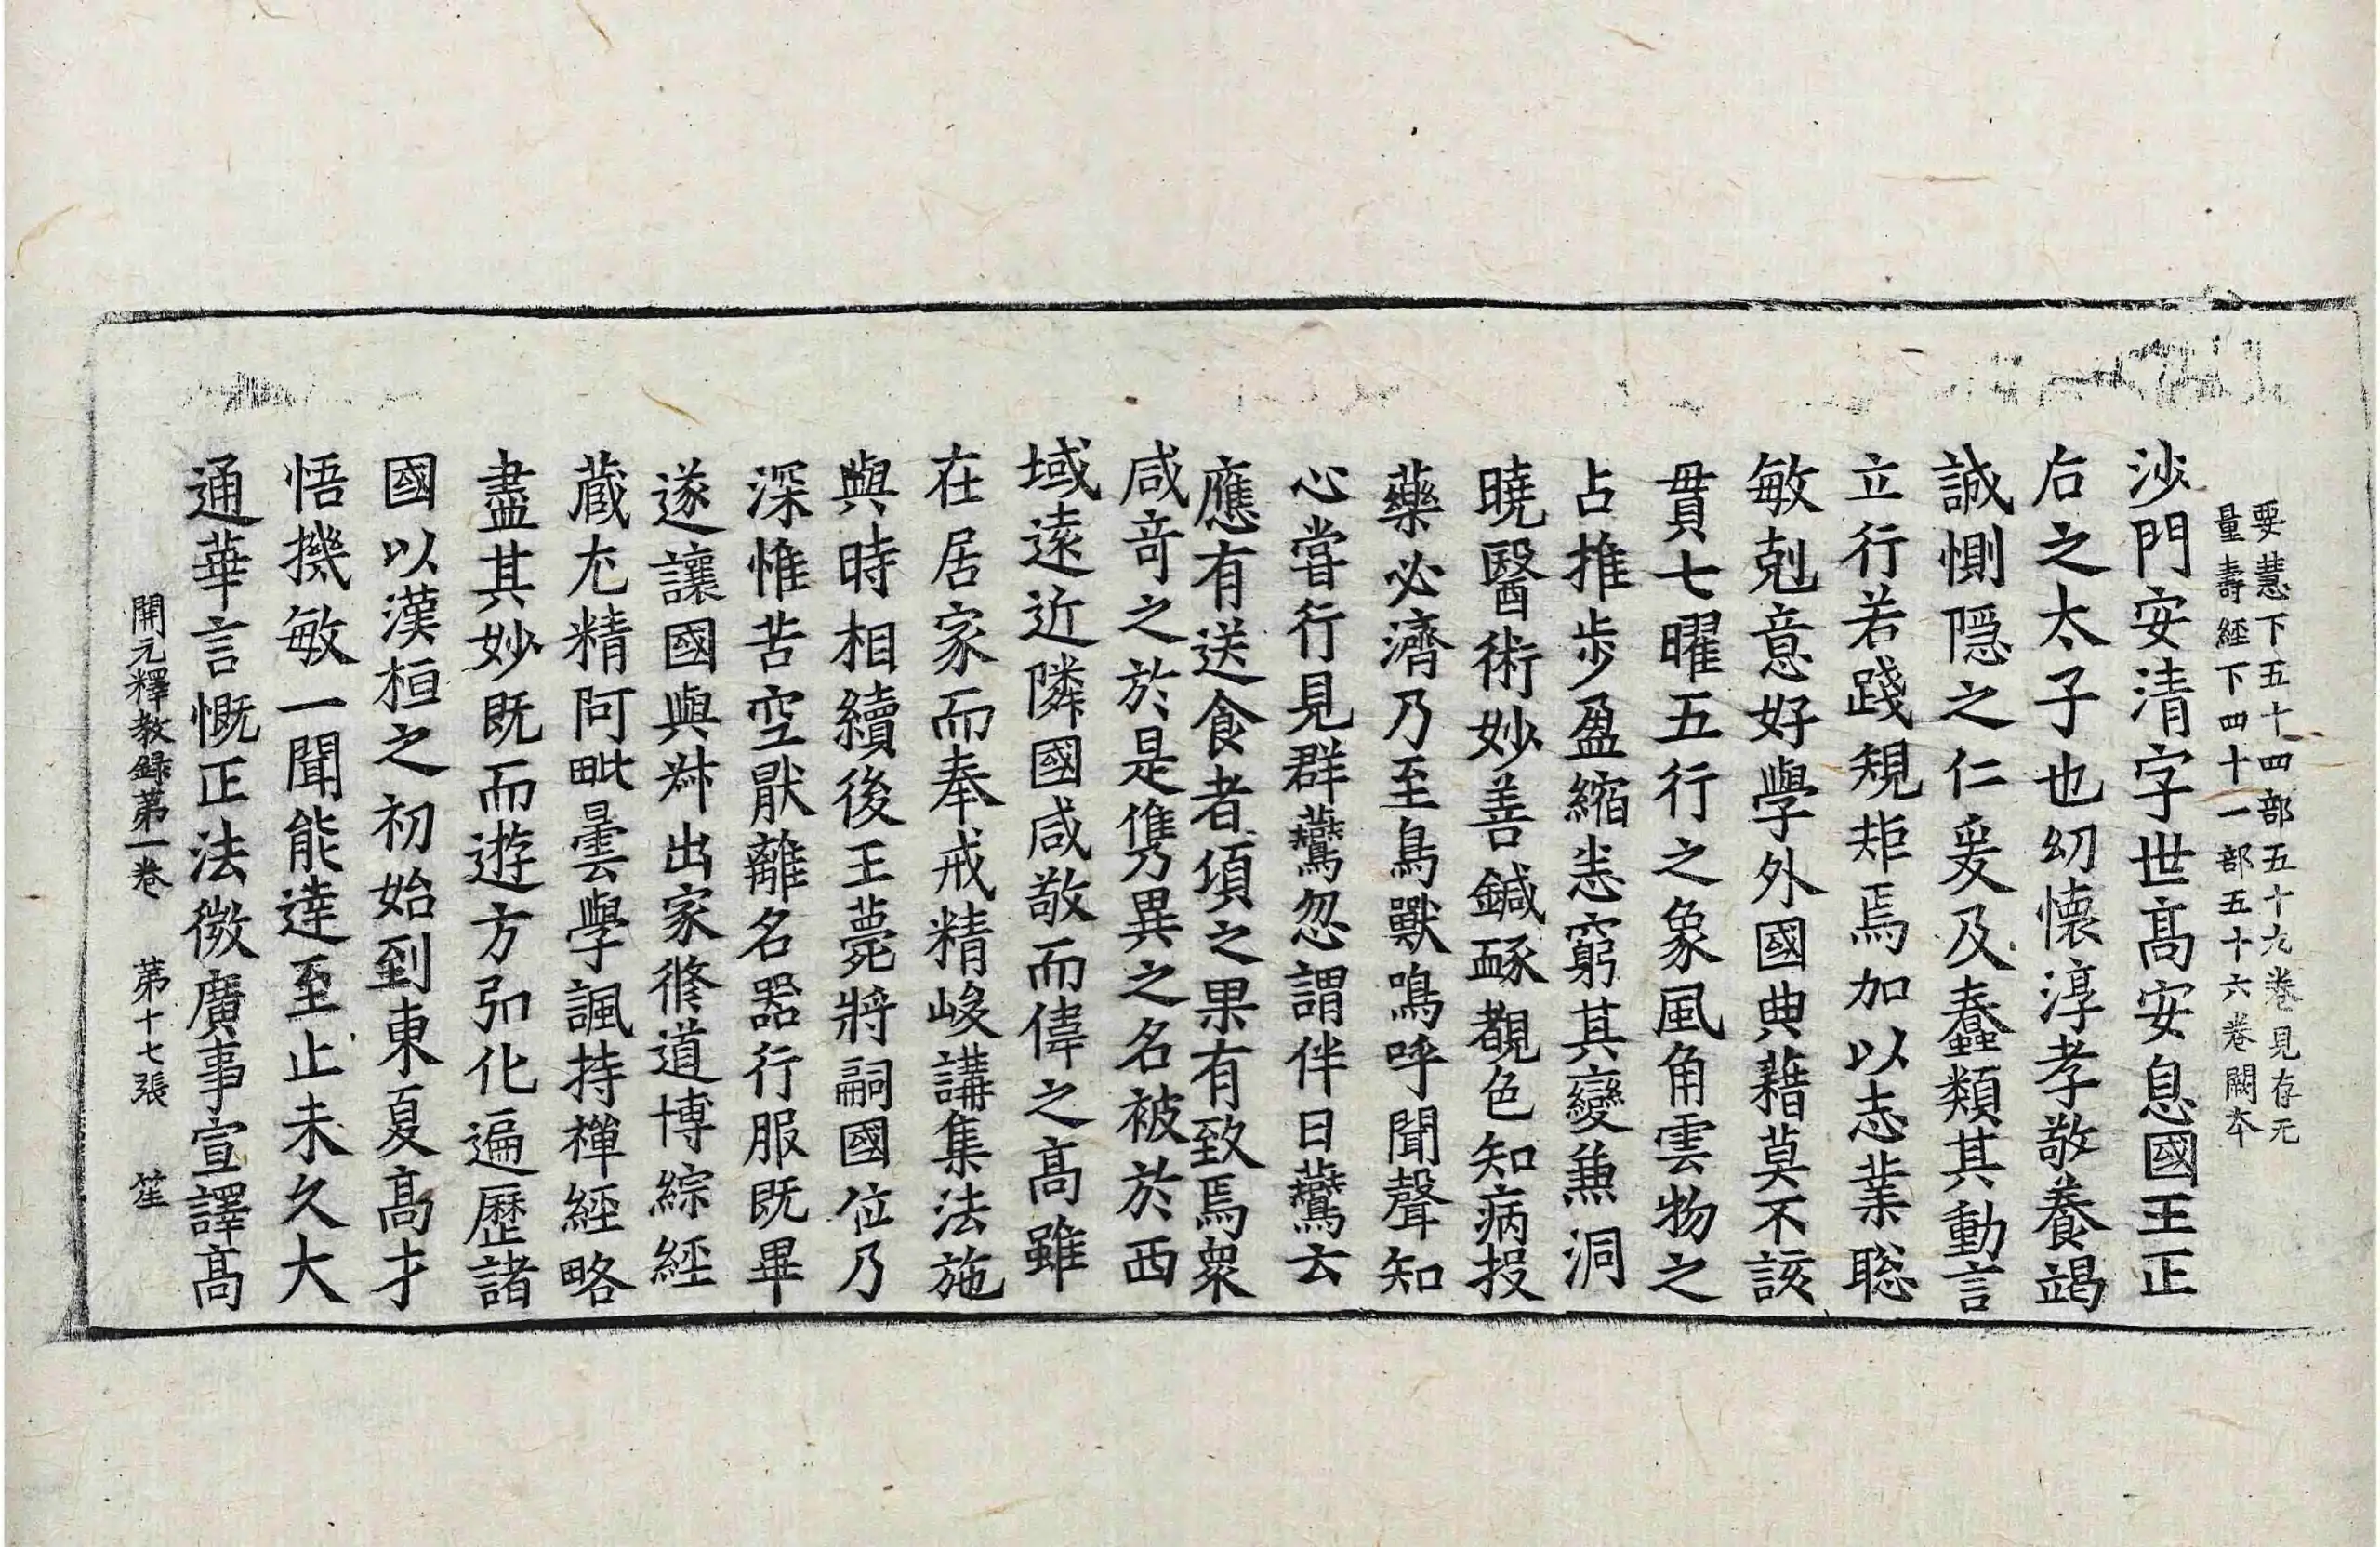 要慧下五十四部五十九卷見存无
量壽經下四十一部五十六卷闕夲
沙門安清字世髙安息國王正
后之太子也㓜懷淳孝敬養竭
誠惻隱之仁爰及蠢類其動言
立行若踐規矩焉加以志業聡
敏剋意好學外國典藉莫不該
貫七曜五行之象風角雲物之
占推步盈縮悉窮其變兼洞
曉醫術妙善鍼䐁覩色知病投
藥必濟乃至鳥獸鳴呼聞聲知
心甞行見群鷰忽謂伴曰鷰云
應有送食者湏之果有致焉衆
咸竒之於是儁異之名被於西
域遠近隣國咸敬而偉之髙雖
在居家而奉戒精峻講集法施
與時相續後王薨將嗣國位乃
深惟苦空猒離名器行服既畢
遂讓國與叔出家脩道博綜經
蔵尤精阿毗曇學諷持禪經略
盡其妙既而遊方弘化遍歷諸
國以漢桓之初始到東夏髙才
悟機敏一聞能達至止未久大
通華言慨正法微廣事宣譯髙
開元釋教録第一卷 第十七張 笙